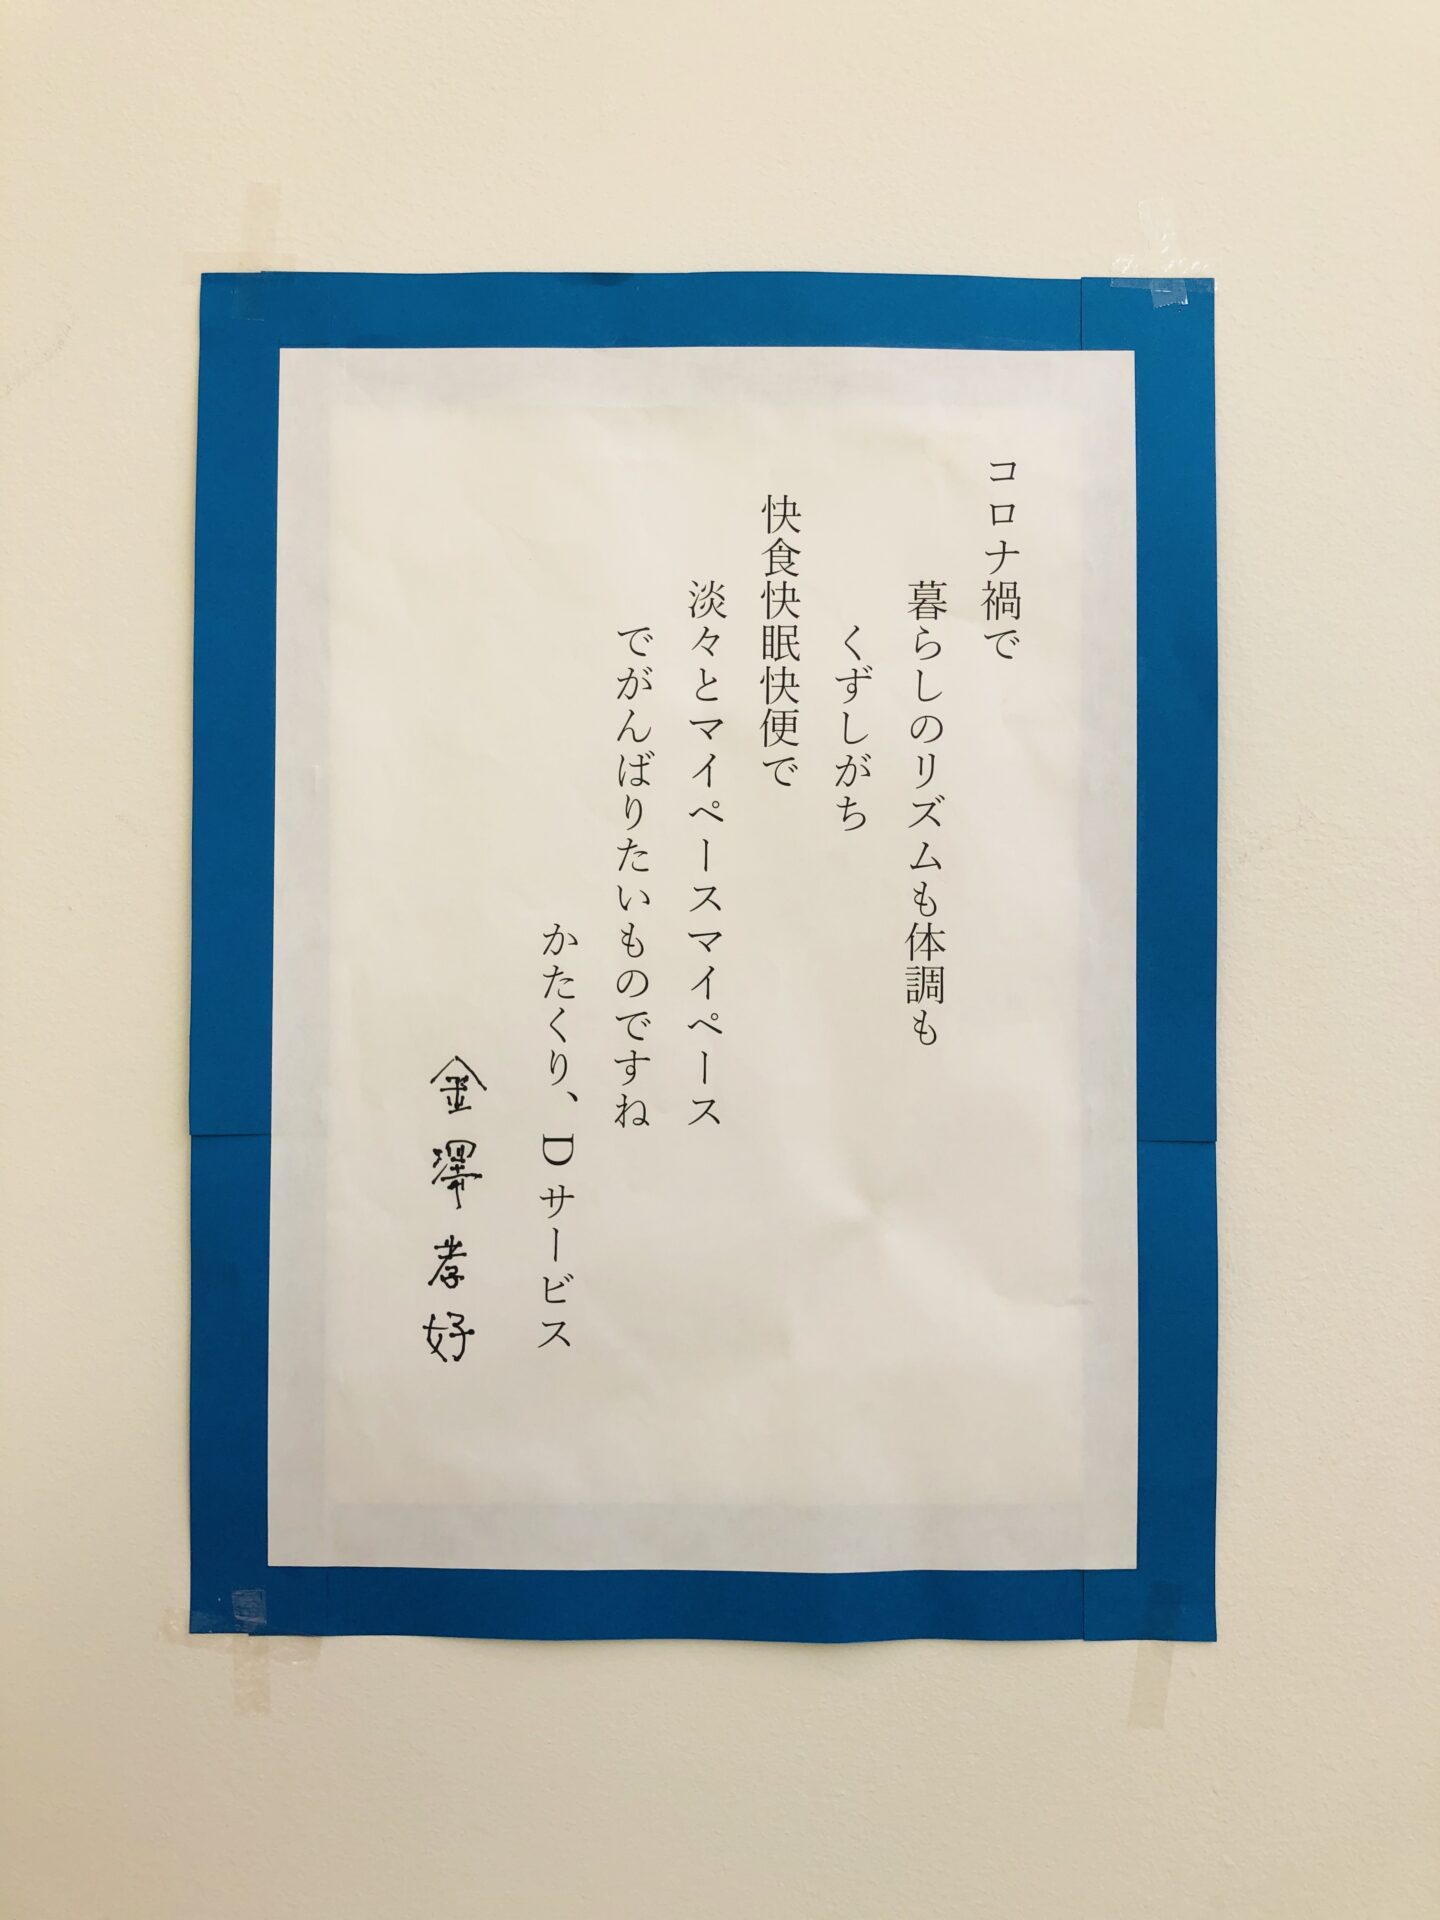 コロナ禍で
暮らしのリズムも体調も
くずしがち
快食快眠快便で
淡々とマイペースマイペース
でがんばりたいものですね
かたくり、Dサービス
金澤孝好